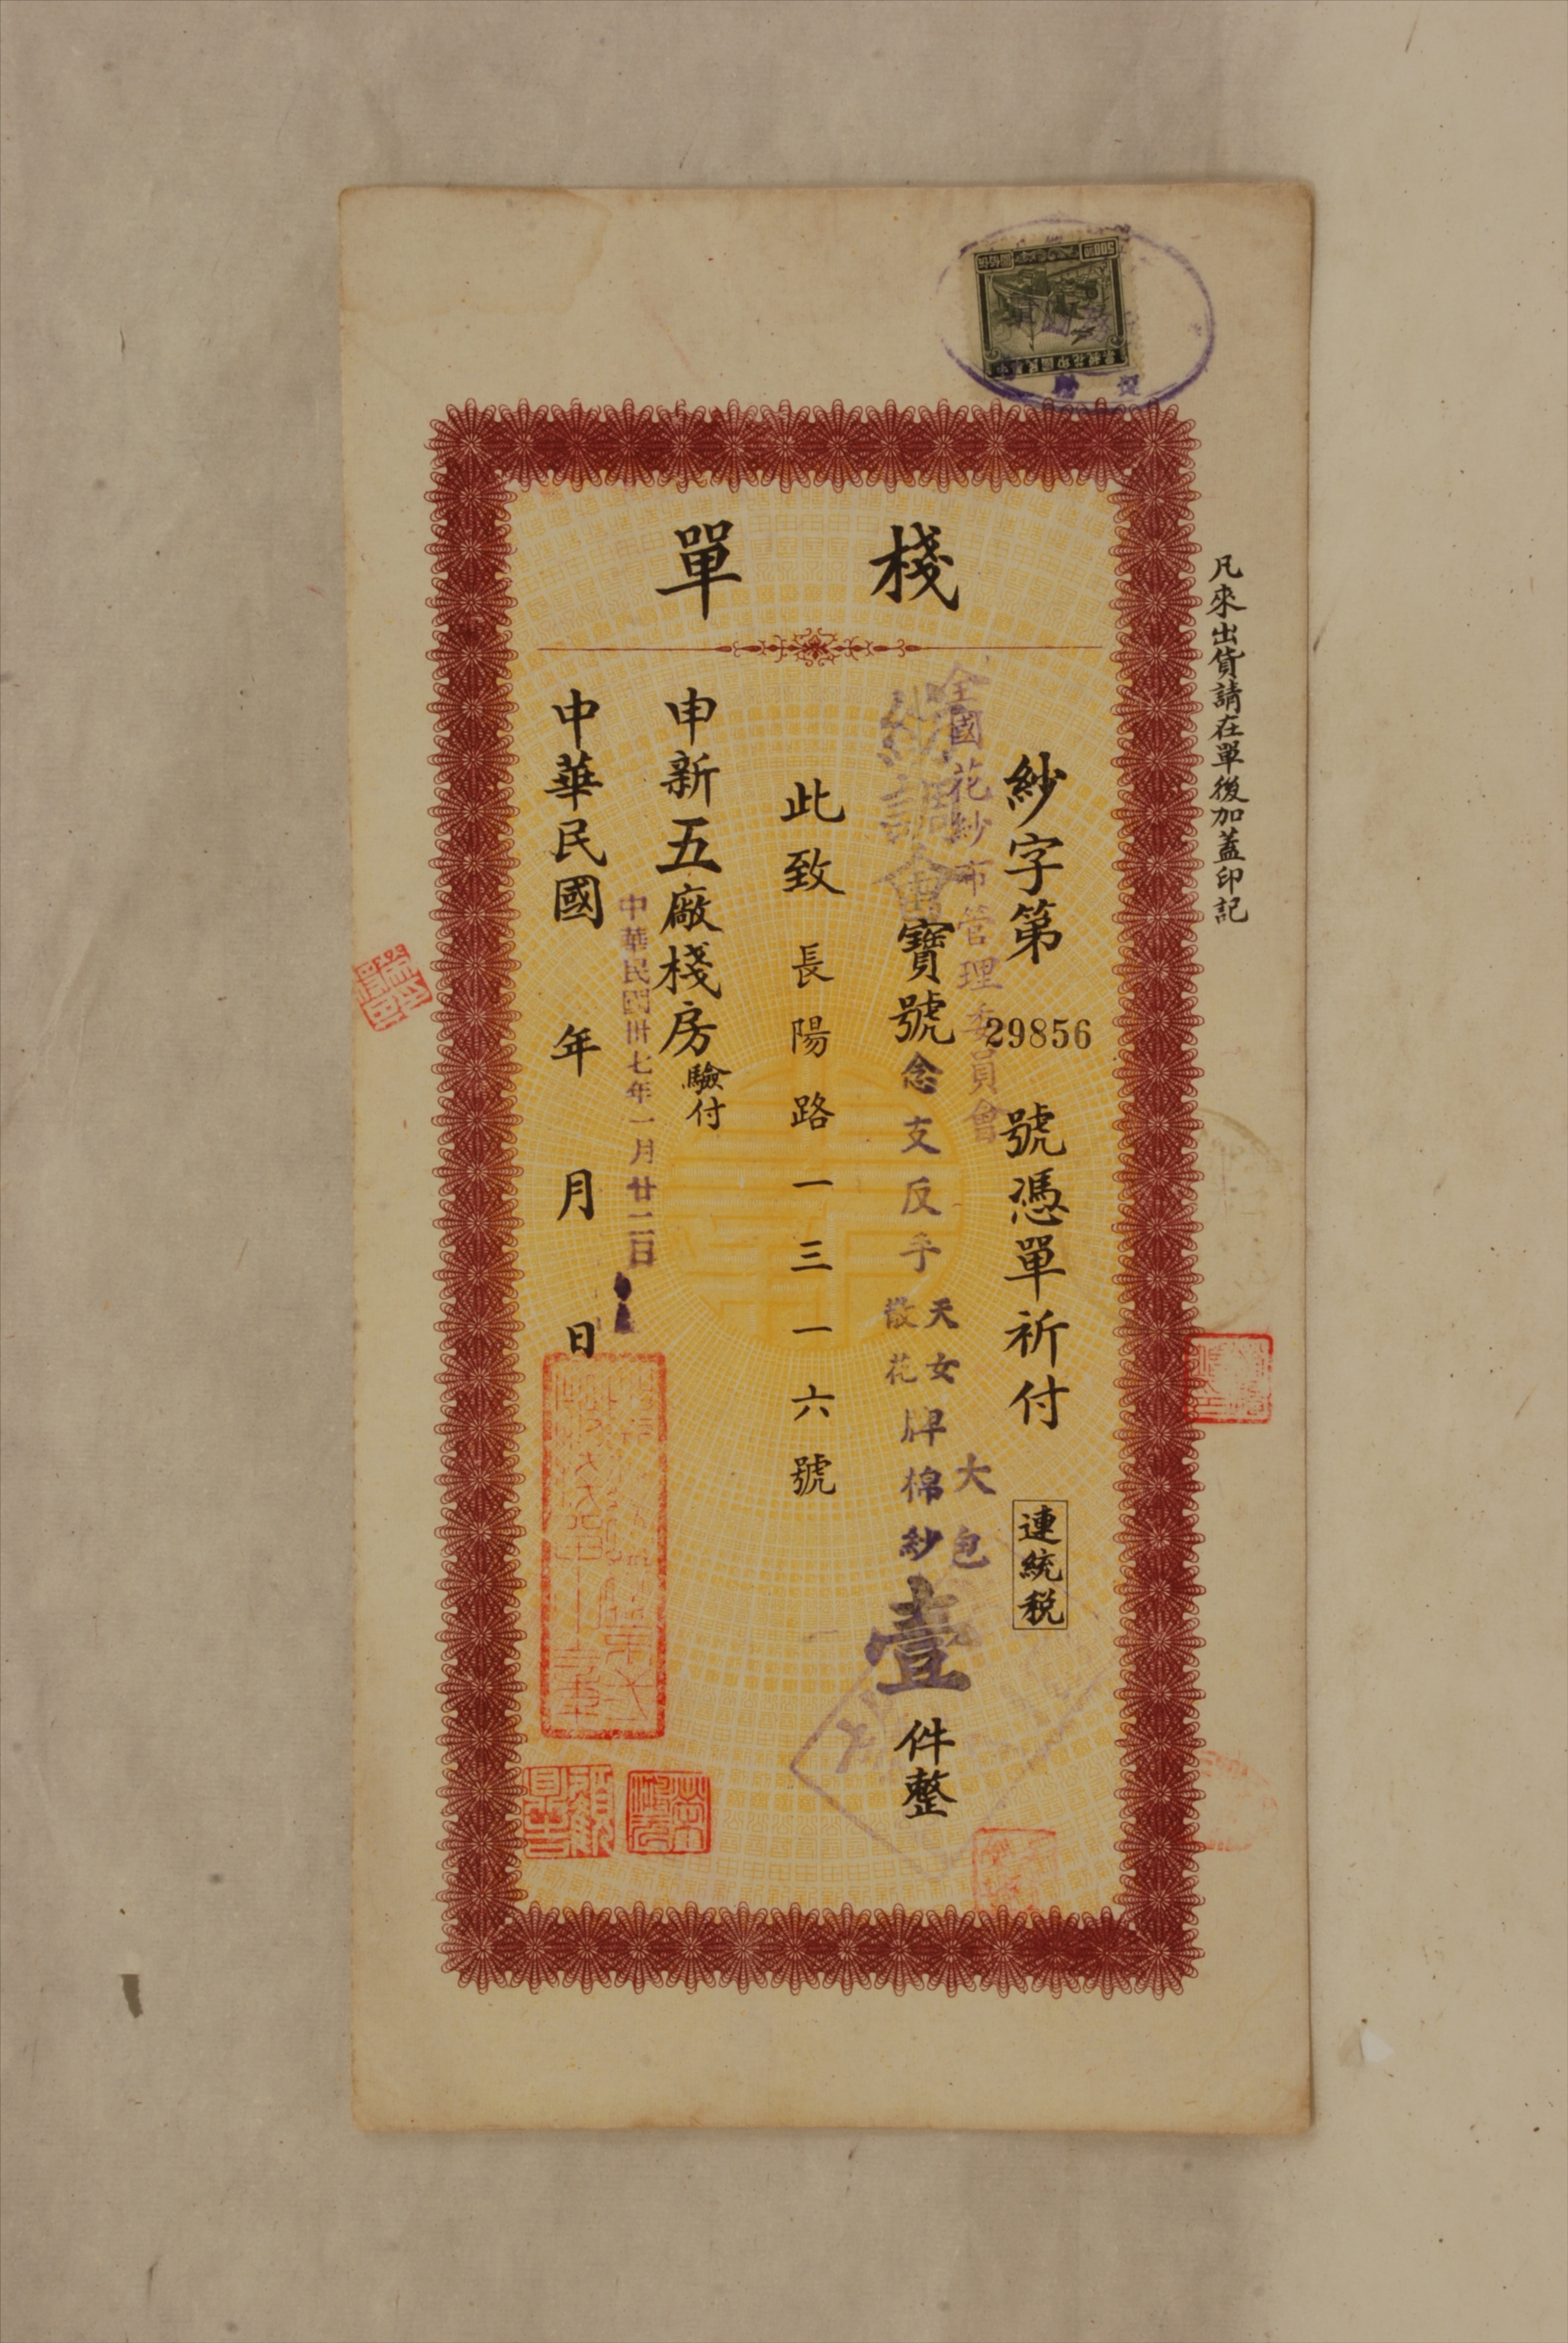 凡來出貨請在單後加蓋印記
棧單
紗字第29856號憑單祈付連統稅
全國花紗布管理委員會
紡調會寶號念支反手天女散花牌棉紗大包壹件整
此致長陽路一三一六號
申新五廠棧房驗付
中華民國卅七年一月廿二日
中華民國年月日
500